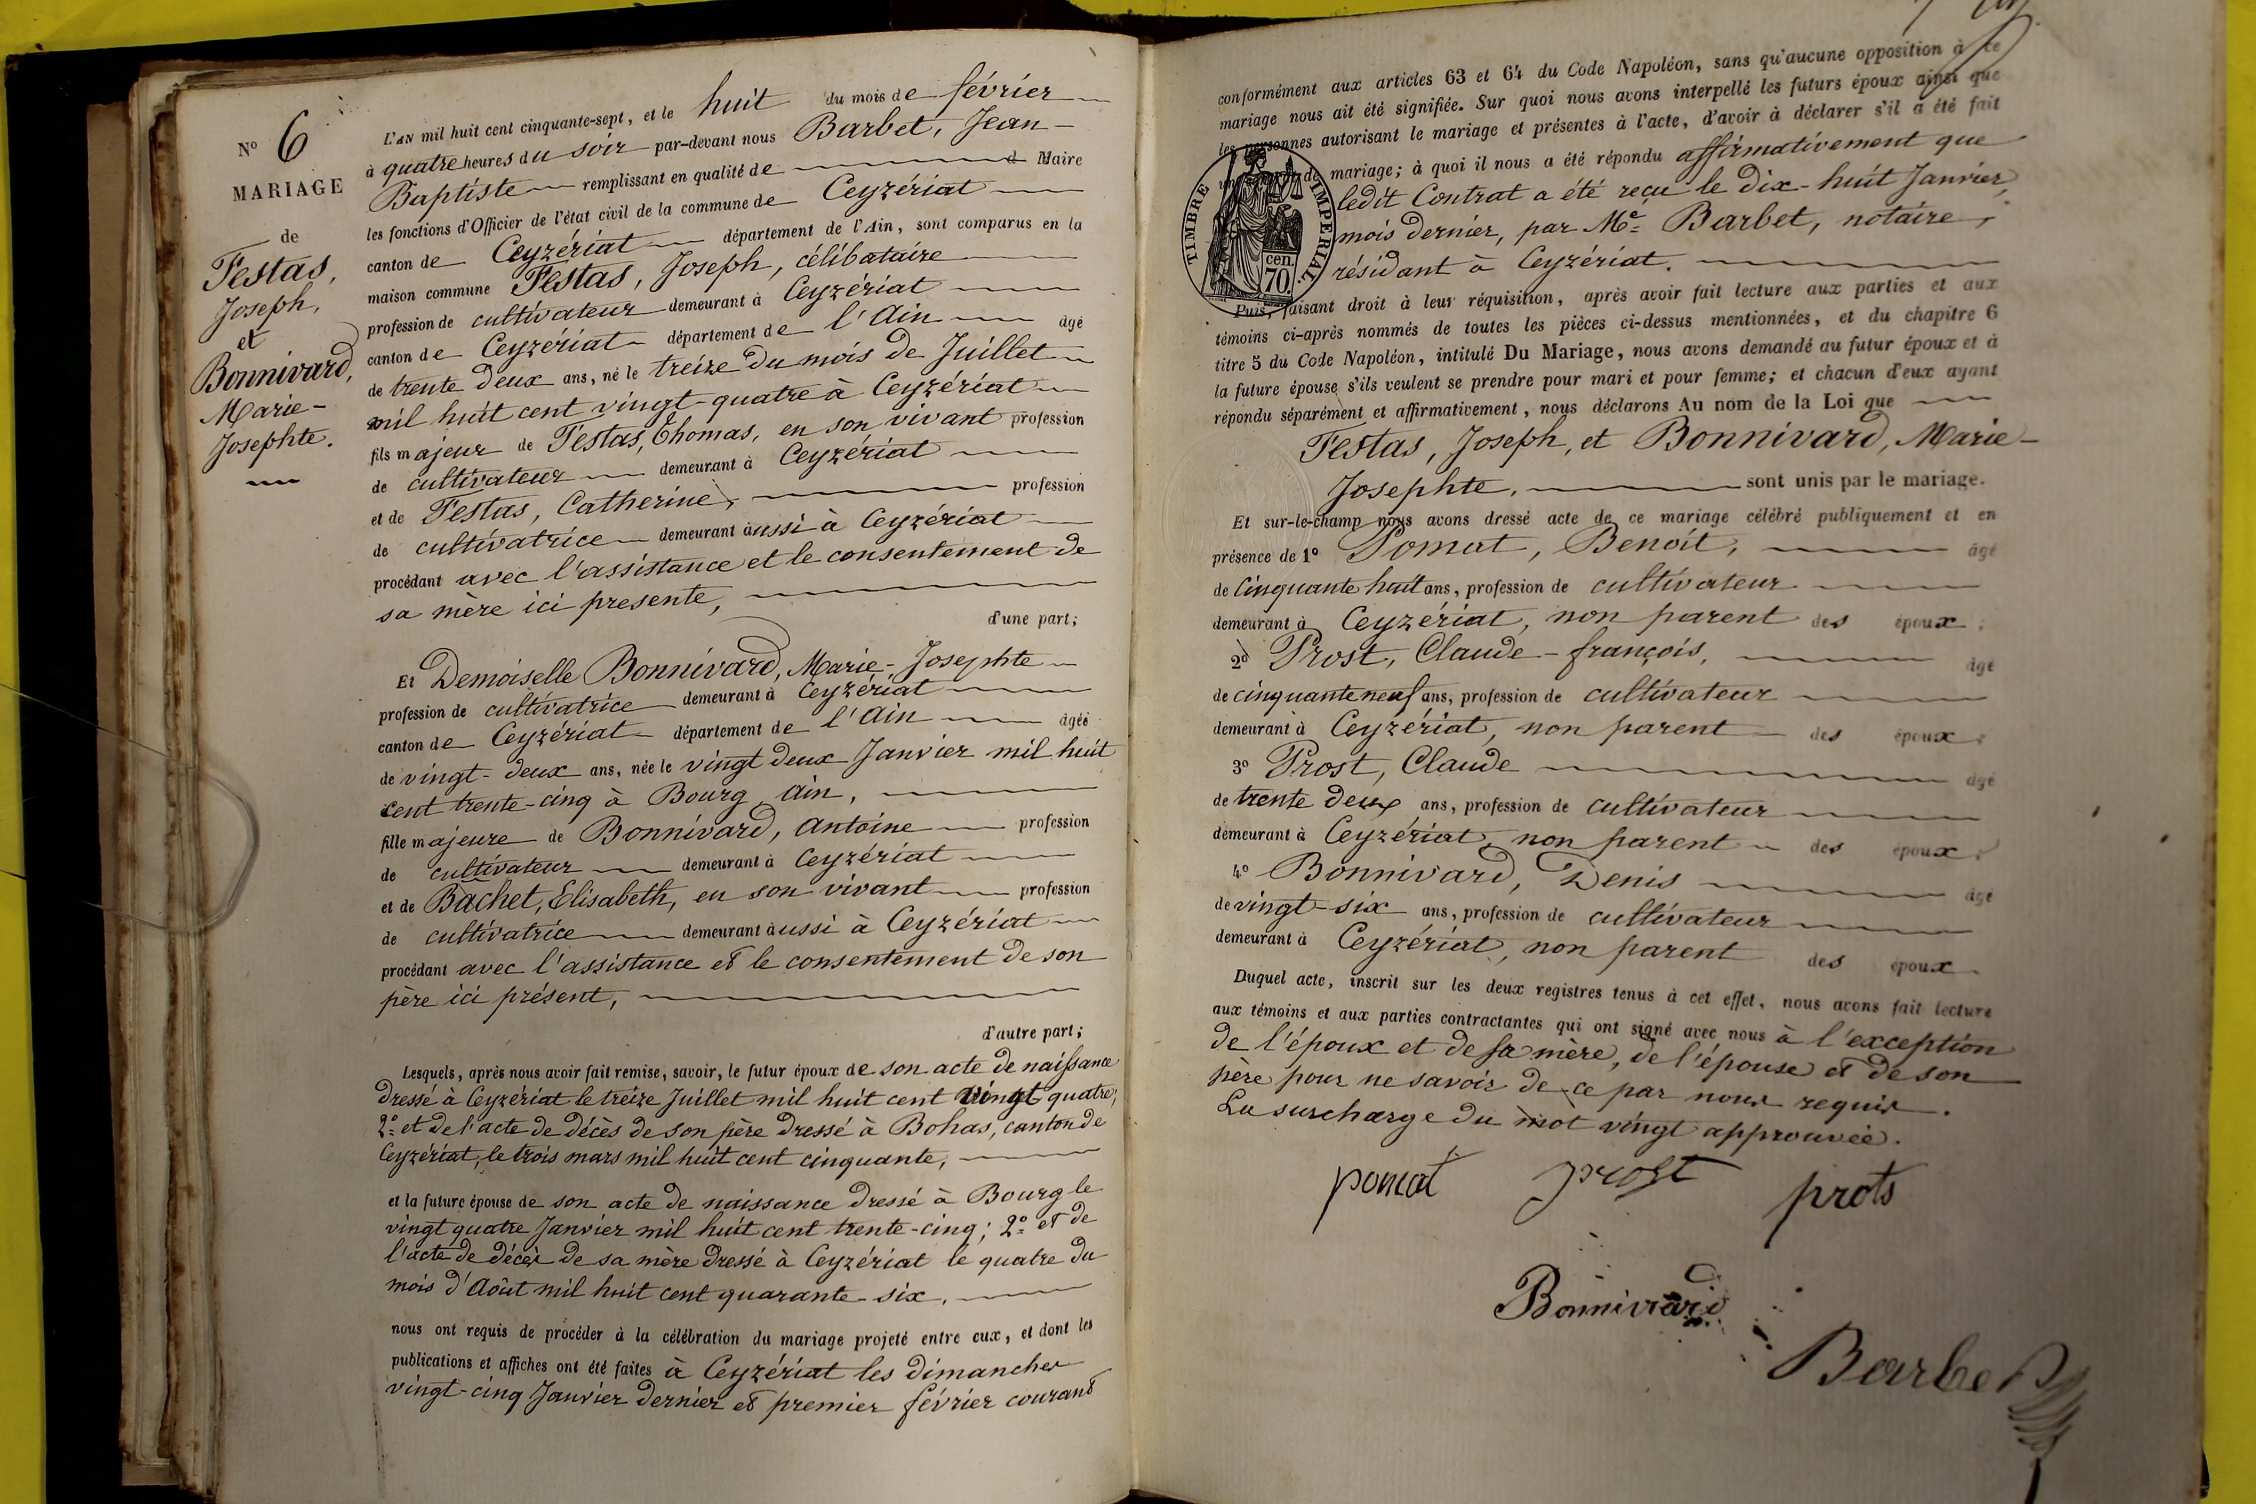 N° 6
MARIAGE
de
Festas,
Joseph,
et
Bonnivard,
Marie-
Josephte.
L'AN mil huit cent cinquante-sept, et le huit du mois de février
à quatre heures du soir par-devant nous Barbet, Jean-
Baptiste remplissant en qualité de Maire
les fonctions d'Officier de l'état civil de la commune de Ceyzériat
canton de Ceyzériat département de l'Ain, sont comparus en la
maison commune Festas, Joseph, célibataire
profession de cultivateur demeurant à Ceyzériat
canton de Ceyzériat département de l'Ain âgé
de trente deux ans, né le treize du mois de Juillet
mil huit cent vingt-quatre à Ceyzériat
fils majeur de Festas, Thomas, en son vivant profession
de cultivateur demeurant à Ceyzériat
et de Festas, Catherine, profession
de cultivatrice demeurant aussi à Ceyzériat
procédant avec l'assistance et le consentement de
sa mère ici presente,
d'une part;
Et Demoiselle Bonnivard, Marie-Josephte
profession de cultivatrice demeurant à Ceyzériat
canton de Ceyzériat département de l'Ain âgée
de vingt-deux ans, née le vingt deux Janvier mil huit
cent trente-cinq à Bourg, Ain,
fille majeure de Bonnivard, Antoine profession
de cultivateur demeurant à Ceyzériat
et de Bachet, Elisabeth, en son vivant profession
de cultivatrice demeurant aussi à Ceyzériat
procédant avec l'assistance et le consentement de son
père ici présent,
d'autre part;
Lesquels, après nous avoir fait remise, savoir, le futur époux de son acte de naissance
dressé à Ceyzériat le treize Juillet mil huit cent vingt quatre;
2° et de l'acte de décès de son père dressé à Bohas, canton de
Ceyzériat, le trois mars mil huit cent cinquante,
et la future épouse de son acte de naissance dressé à Bourg le
vingt quatre Janvier mil huit cent trente-cinq; 2° et de
l'acte de décès de sa mère dressé à Ceyzériat le quatre du
mois d'Août mil huit cent quarante-six,
nous ont requis de procéder à la célébration du mariage projeté entre eux, et dont les
publications et affiches ont été faites à Ceyzériat les dimanches
vingt-cinq Janvier dernier et premier février courant
conformément aux articles 63 et 64 du Code Napoléon, sans qu'aucune opposition à ce
mariage nous ait été signifiée. Sur quoi nous avons interpellé les futurs époux ainsi que
les personnes autorisant le mariage et présentes à l'acte, d'avoir à déclarer s'il a été fait
de mariage; à quoi il nous a été répondu affirmativement que
ledit Contrat a été reçu le dix-huit Janvier,
mois dernier, par Me Barbet, notaire,
résidant à Ceyzériat.
TIMBRE IMPERIAL
70 cen.
Puis, faisant droit à leur réquisition, après avoir fait lecture aux parties et aux
témoins ci-après nommés de toutes les pièces ci-dessus mentionnées, et du chapitre 6
titre 5 du Code Napoléon, intitulé Du Mariage, nous avons demandé au futur époux et à
la future épouse s'ils veulent se prendre pour mari et pour femme; et chacun d'eux ayant
répondu séparément et affirmativement, nous déclarons Au nom de la Loi que
Festas, Joseph, et Bonnivard, Marie-
Josephte, sont unis par le mariage.
Et sur-le-champ nous avons dressé acte de ce mariage célébré publiquement et en
présence de 1° Pomat, Benoit, âgé
de cinquante huit ans, profession de cultivateur
demeurant à Ceyzériat, non parent des époux;
2° Prost, Claude-françois, âgé
de cinquante neuf ans, profession de cultivateur
demeurant à Ceyzériat, non parent des époux;
3° Prost, Claude âgé
de trente deux ans, profession de cultivateur
demeurant à Ceyzériat, non parent des époux;
4° Bonnivard, Denis âgé
de vingt-six ans, profession de cultivateur
demeurant à Ceyzériat, non parent des époux
Duquel acte, inscrit sur les deux registres tenus à cet effet, nous avons fait lecture
aux témoins et aux parties contractantes qui ont signé avec nous à l'exception
de l'époux et de sa mère, de l'épouse et de son
père pour ne savoir de ce par nous requis.
La surcharge du mot vingt approuvée.
pomat prost prots
Bonnivard
Barbet